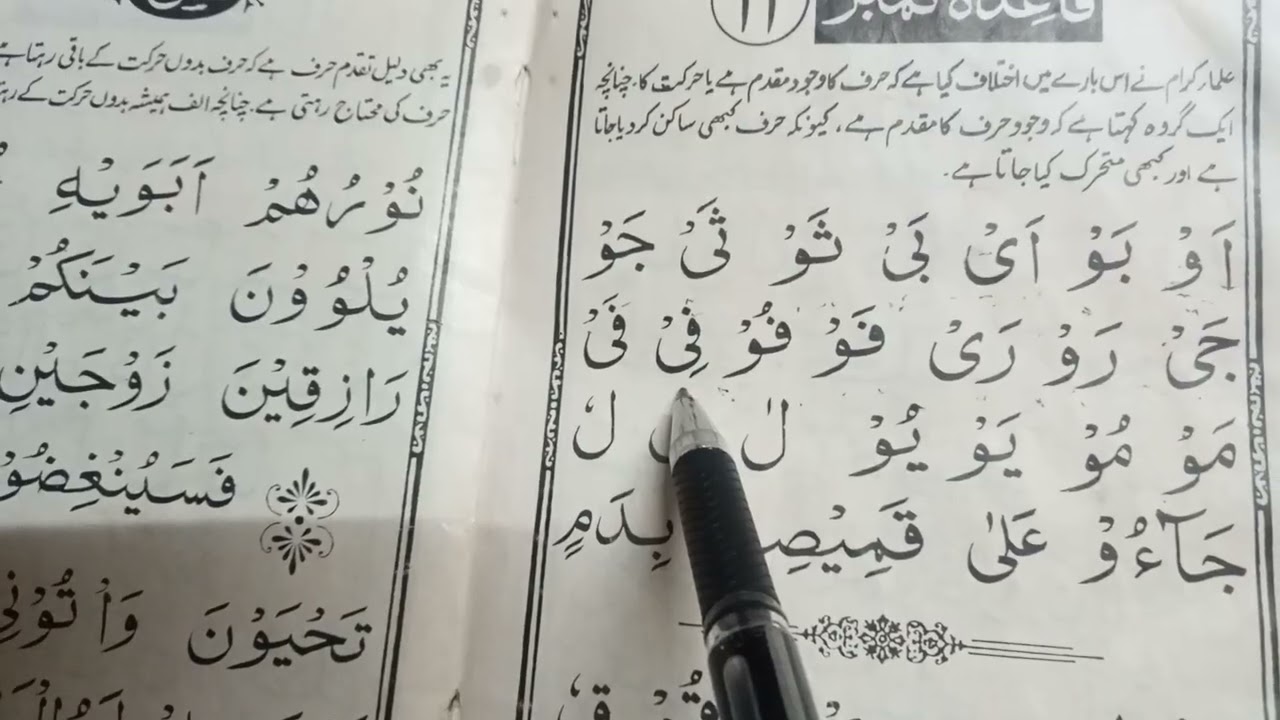 قاعدہ نمبر ۱۱
علمار کرام نے اس بارے میں اختلاف کیا ہے کہ حرف کا وجود مقدم ہے یا حرکت کا، چنانچہ
ایک گروہ کہتا ہے کہ وجود حرف کا مقدم ہے، کیونکہ حرف کبھی ساکن کر دیا جاتا
ہے اور کبھی متحرک کیا جاتا ہے.
اَوْ بَوْ اَیْ بَیْ ثَوْ ثَیْ جَوْ
جَیْ رَوْ رَیْ فَوْ فُوْ فِیْ فَیْ
مَوْ مُوْ یَوْ یُوْ لٰ لٗ
جَآءُوْ عَلٰی بِدَمٍ
یہ بھی دلیل تقدم حرف ہے کہ حرف بدوں حرکت کے باقی رہتا ہے
حرف کی محتاج رہتی ہے. چنانچہ الف ہمیشہ بدوں حرکت کے
نُوْرُهُمْ اَبَوَیْهِ
یُلْوُوْنَ بَیْنَکُمْ
رَازِقِیْنَ زَوْجَیْنِ
فَسَیُنْغِضُوْ
تَحْیَوْنَ وَاْتُوْنِیْ